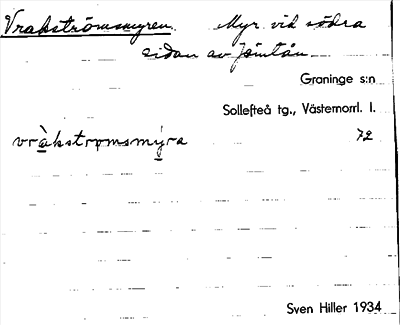 Vrakströmsmyren. Myr vid södra
sidan av Jömtån
Graninge s:n
Sollefteå tg., Västernorrl. l.
vràkstromsmýra 72
Sven Hiller 1934